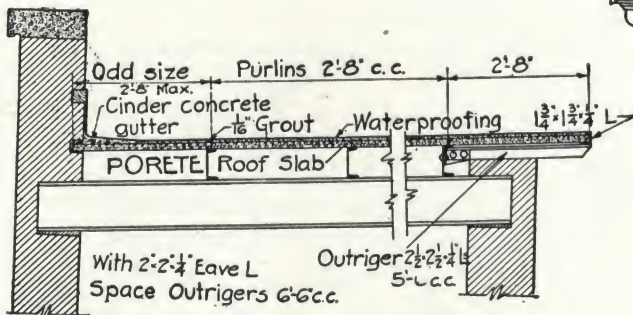 Odd size
2'-8" Max.
Purlins 2'-8" c.c.
2'-8"
Cinder concrete
gutter
1/16" Grout
Waterproofing
1 3/4" x 1 3/4" x 1/4" L
PORETE
Roof Slab
With 2"·2"·1/4" Eave L
Space Outrigers 6'-6" c.c.
Outriger 2 1/2·2 1/2·1/4" L
c.c.